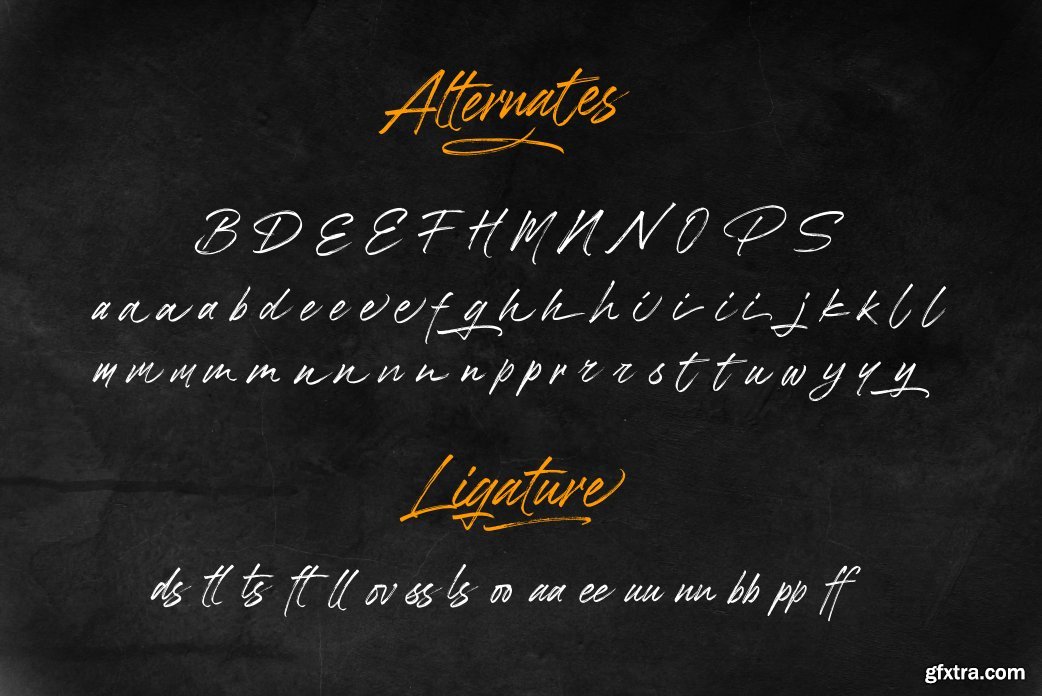 Alternates
B D E E F H M N N O P S
a a a a b d e e e e f g h h h i i i i j k k l l
m m m m m n n n n n p p r r r s t t u w y y y
Ligature
ds tl ts ft ll ov ss ls oo aa ee uu nn bb pp ff
gfxtra.com